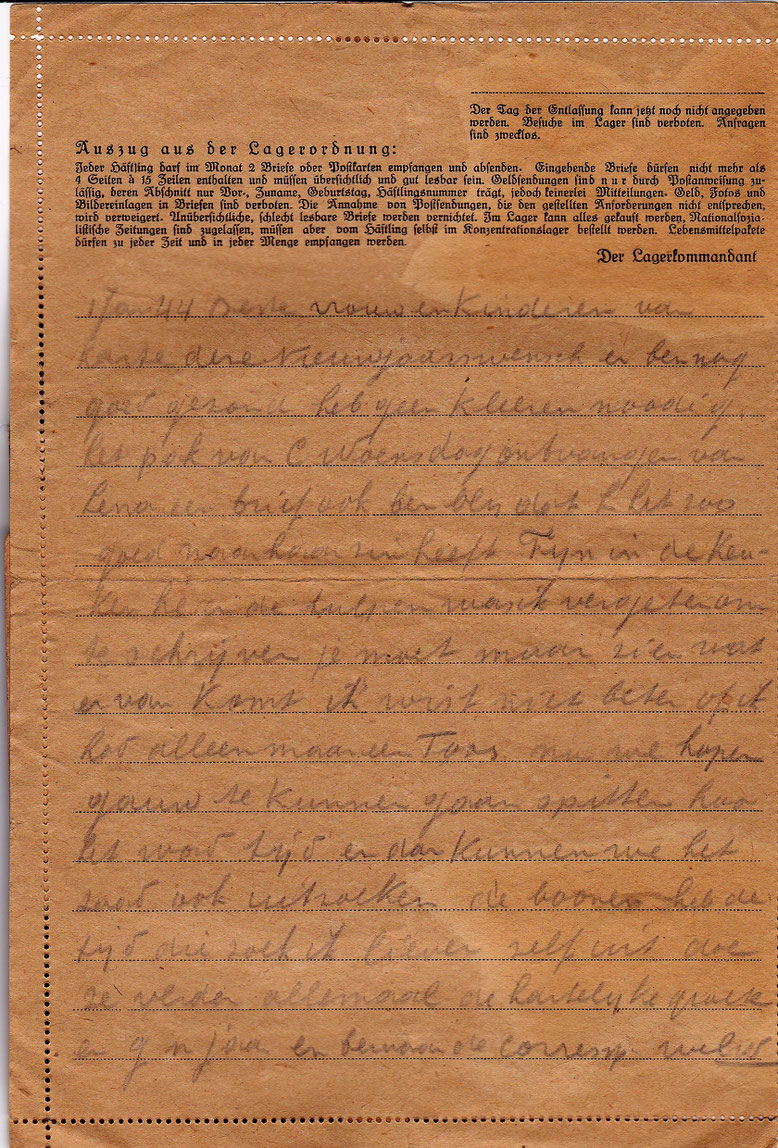 Der Tag der Entlassung kann jetzt noch nicht angegeben
werden. Besuche im Lager sind verboten. Anfragen
sind zwecklos.
Auszug aus der Lagerordnung:
Jeder Häftling darf im Monat 2 Briefe oder Postkarten empfangen und absenden. Eingehende Briefe dürfen nicht mehr als
4 Seiten à 15 Zeilen enthalten und müssen übersichtlich und gut lesbar sein. Geldsendungen sind nur durch Postanweisung zu-
lässig, deren Abschnitt nur Vor-, Zuname, Geburtstag, Häftlingsnummer trägt, jedoch keinerlei Mitteilungen. Geld, Fotos und
Bildereinlagen in Briefen sind verboten. Die Annahme von Postsendungen, die den gestellten Anforderungen nicht entsprechen,
wird verweigert. Unübersichtliche, schlecht lesbare Briefe werden vernichtet. Im Lager kann alles gekauft werden. Nationalsozia-
listische Zeitungen sind zugelassen, müssen aber vom Häftling selbst im Konzentrationslager bestellt werden. Lebensmittelpakete
dürfen zu jeder Zeit und in jeder Menge empfangen werden.
Der Lagerkommandant
1 Jan 44 Beste vrouw en Kinderen van
harte deze Nieuwjaarswensch ik ben nog
goed gezond heb geen kleeren noodig
het pak van C Woensdag ontvangen van
Lena een brief ook ben bly dat h het zoo
goed naar haar zin heeft Tyn in de Keu-
de tulpen was ik vergeten om
te schrijven je moet maar zien wat
er van Komt ik wist niet beter of ik
had alleen maar een nu we hopen
gauw te Kunnen gaan spitten hoor
het word tijd en dan Kunnen we het
zaad ook uitzoeken de boonen heb de
tijd die zoek ik liever zelf uit doe
ze verder allemaal de hartelijke groete
en g n jaar en bewaar de corresp